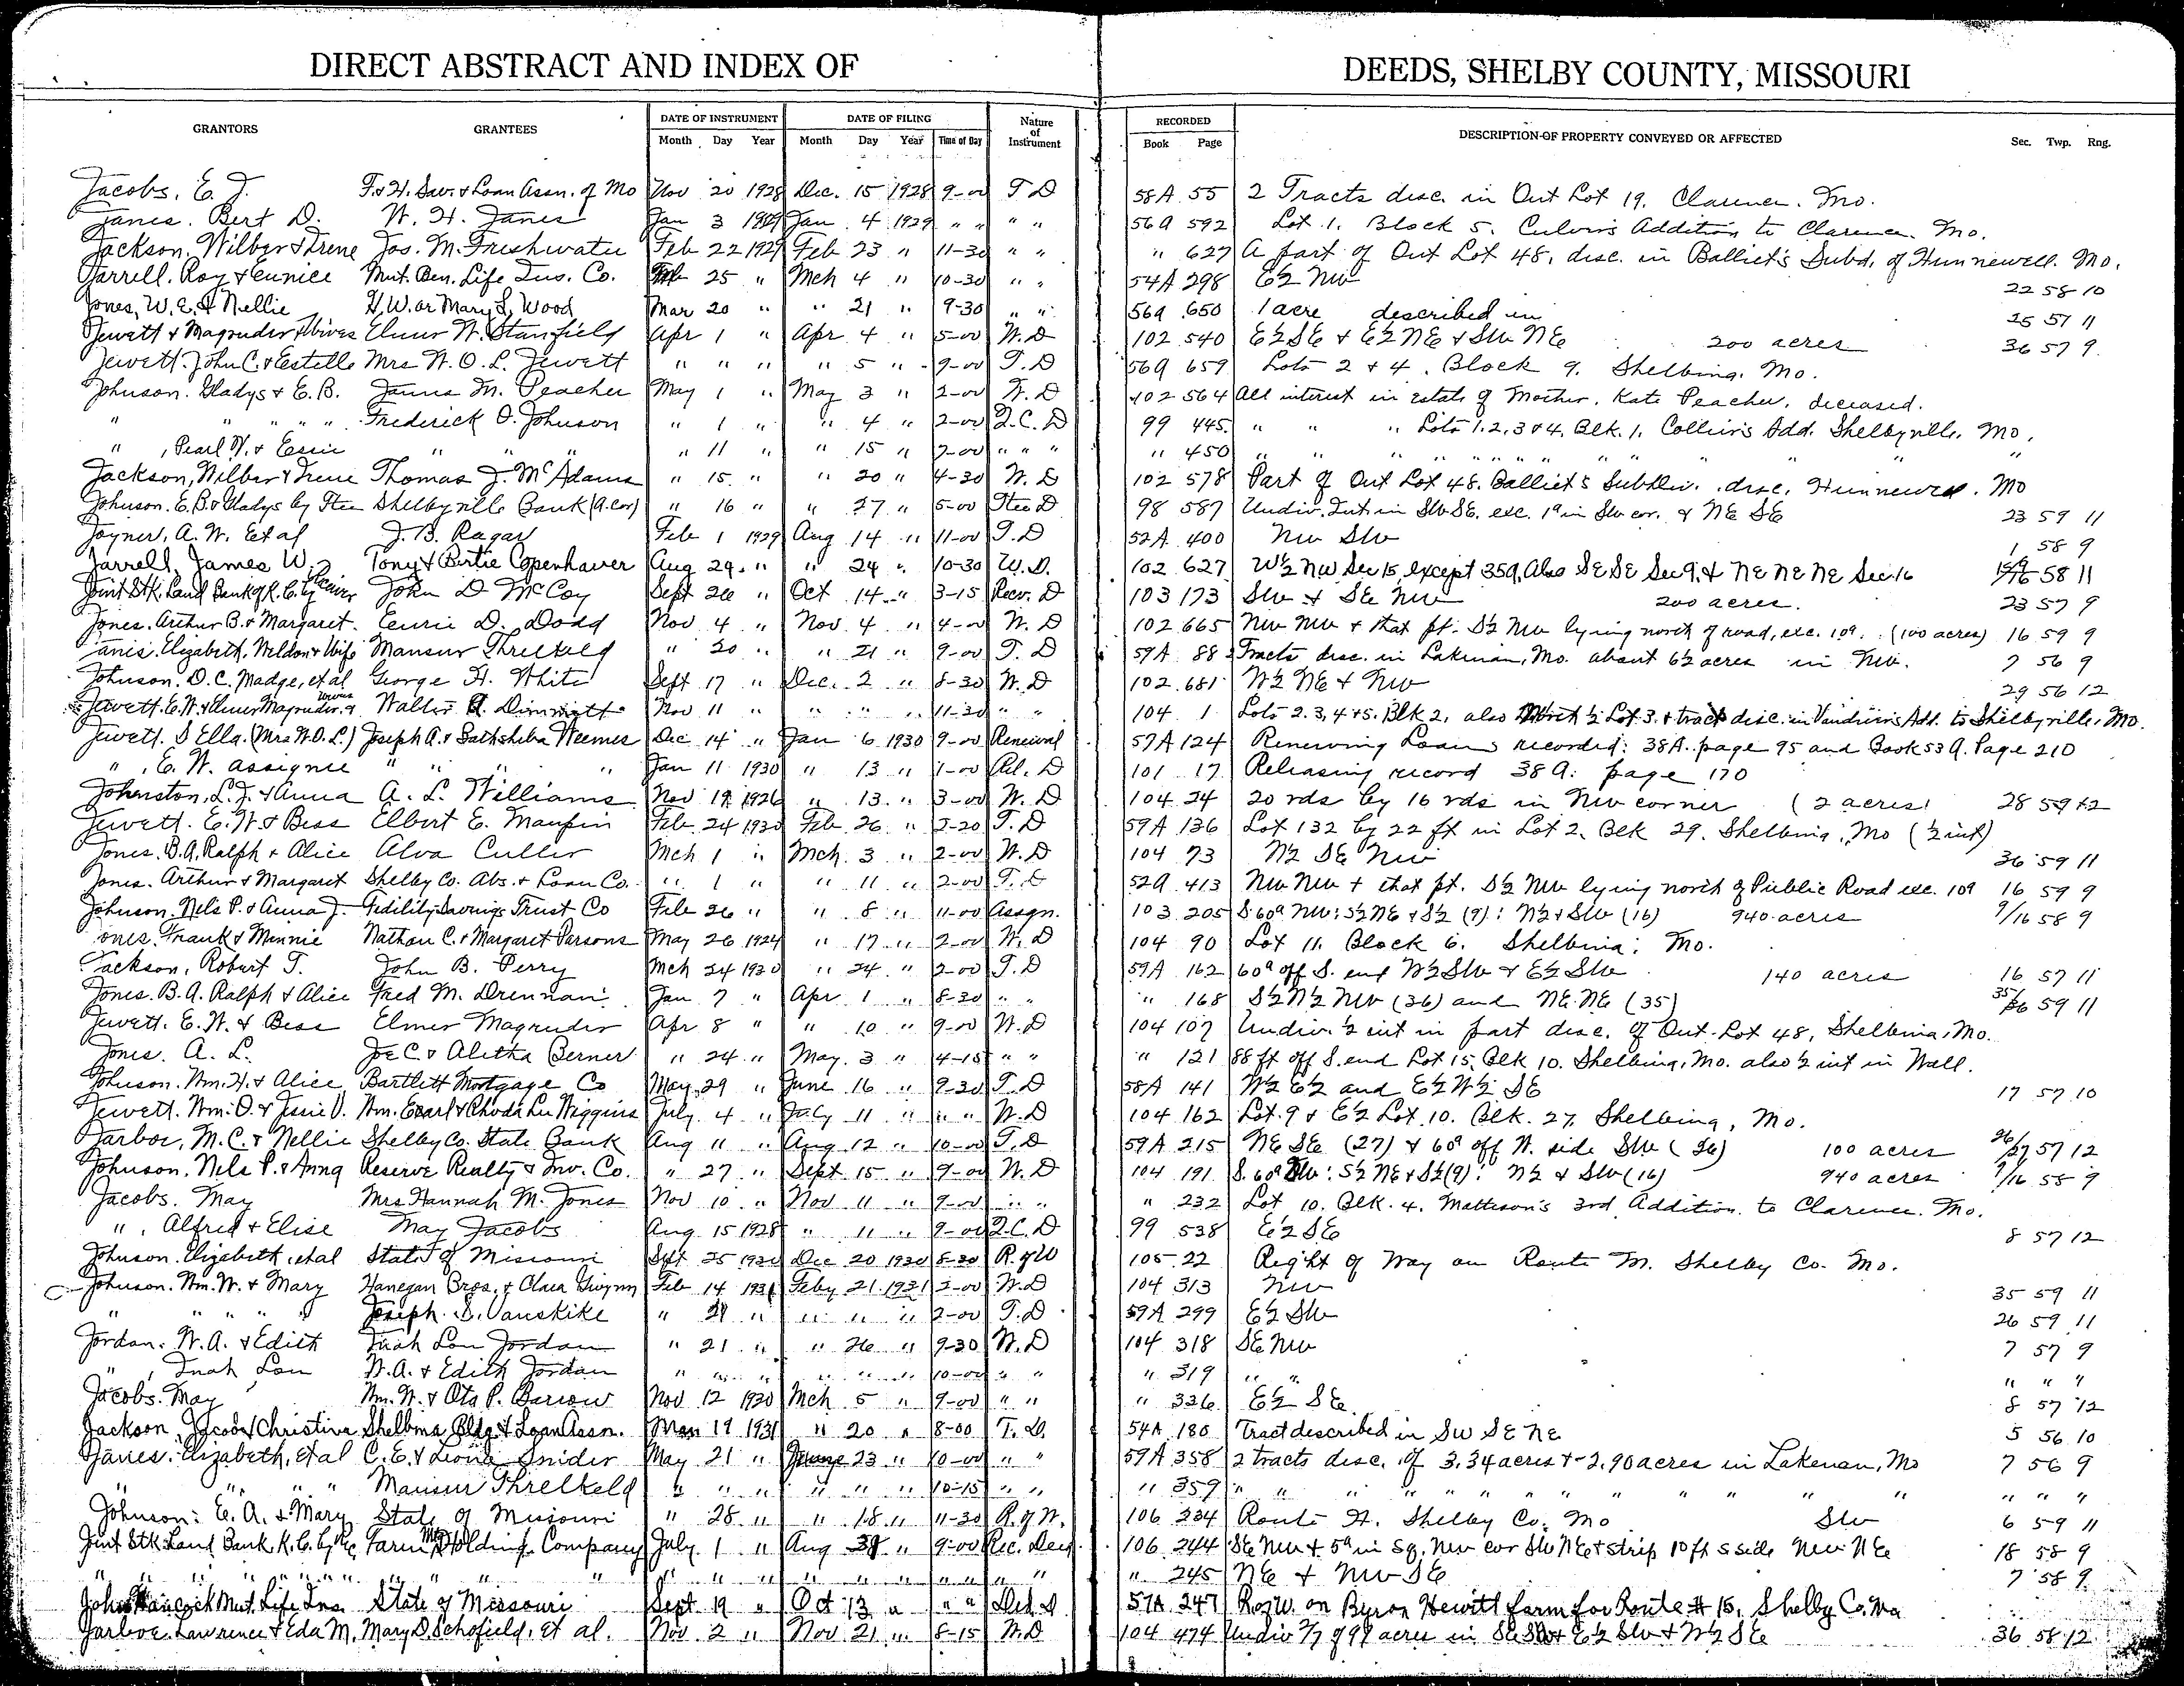 DIRECT ABSTRACT AND INDEX OF DEEDS, SHELBY COUNTY, MISSOURI
GRANTORS GRANTEES DATE OF INSTRUMENT DATE OF FILING Nature of Instrument RECORDED DESCRIPTION OF PROPERTY CONVEYED OR AFFECTED Sec. Twp. Rng.
Month Day Year Month Day Year Time of Day Book Page
Jacobs, E. J. F. & H. Sav. & Loan Assn. of Mo Nov 20 1928 Dec. 15 1928 9-00 T D 58A 55 2 Tracts desc. in Out Lot 19. Clarence. Mo.
Janes. Bert D. W. H. Janes Jan 3 1929 Jan 4 1929 " " " " 56A 592 Lot 1. Block 5. Culver's Addition to Clarence. Mo.
Jackson, Wilber & Irene Jos. M. Freshwater Feb 22 1929 Feb 23 " 11-30 " " " 627 A part of Out Lot 48, disc. in Balliet's Subd. of Hunnewell. Mo.
Jarrell. Roy & Eunice Mut. Ben. Life Ins. Co. Feb 25 " Mch 4 " 10-30 " " 54A 298 E½ NW 22 58 10
Jones, W. E. & Nellie H.W. or Mary L. Wood Mar 20 " " 21 " 9-30 " " 56A 650 1 acre described in 25 57 11
Jewett & Magruder & Wives Elmer W. Stanfield Apr 1 " Apr 4 " 5-00 W. D 102 540 E½ SE & E½ NE & SW NE 200 acres 36 57 9
Jewett. John C. & Estelle Mrs W. O. L. Jewett " " " " 5 " 9-00 T. D 56A 659 Lots 2 & 4. Block 9. Shelbina. Mo.
Johnson. Gladys & E. B. James M. Peacher May 1 " May 3 " 2-00 W. D 102 564 All interest in estate of Mother. Kate Peacher, deceased.
" " " " Frederick O. Johnson " 1 " " 4 " 2-00 Q. C. D 99 445 " " " Lots 1, 2, 3 & 4, Blk. 1. Collier's Add. Shelbyville. Mo.
" , Pearl W. & Essie " " " 11 " " 15 " 2-00 " " " " 450 " " " " " " " " " "
Jackson, Wilber & Irene Thomas J. McAdams " 15 " " 20 " 4-30 W. D 102 578 Part of Out Lot 48. Balliet's Subdiv. disc. Hunnewell. Mo
Johnson. E. B. & Gladys by Tree Shelbyville Bank (A Cor) " 16 " " 27 " 5-00 Tree D 98 587 Undiv. Int in SW SE. exc. 1a in SW cor. & NE SE 23 59 11
Joyner, A. W. Et al J. B. Ragar Feb 1 1929 Aug 14 " 11-00 T. D 52A 400 NW SW 1 58 9
Jarrell, James W. Tony & Birtie Copenhaver Aug 29 " " 24 " 10-30 W. D. 102 627 W½ NW Sec 15, except 35a, Also SE SE Sec 9, & NE NE NE Sec 16 58 11
Joint Stk. Land Bank of K. C. by Recvr John D McCoy Sept 26 " Oct 14 " 3-15 Recv. D 103 173 SW & SE NW 200 acres. 23 57 9
Jones. Arthur B. & Margaret. Eeurie D. Dodd Nov 4 " Nov. 4 " 4-00 W. D 102 665 NW NW & that pt. S½ NW lying north of road, exc. 10a. (100 acres) 16 59 9
Janes. Elizabeth. Weldon & Wife Mansur Threlkeld " 20 " " 21 " 9-00 T. D 59A 88 2 Tracts desc. in Lakenan, Mo. about 6½ acres in NW. 7 56 9
Johnson. D. C. Madge, et al George H. White Sept 17 " Dec. 2 " 8-30 W. D 102 681 W½ NE & NW 29 56 12
Jewett. E. W. & Elmer Magruder & wives Walter A. Dimmitt Nov 11 " " " " 11-30 " " 104 1 Lots 2. 3, 4 & 5. Blk 2, also North ½ Lot 3. & tract disc. in Vandiver's Add. to Shelbyville, Mo.
Jewett. S Ella. (Mrs W. O. L.) Joseph A. & Bathsheba Weemes Dec 14 " Jan 6 1930 9-00 Renewal 57A 124 Renewing Loan recorded: 38A. page 95 and Book 53 A. Page 210
" , E. W. assignee " " " Jan 11 1930 " 13 " 1-00 Rel. D 101 17 Releasing record 38A. page 170
Johnston, L. J. & Anna A. L. Williams Nov 19 1926 " 13 " 3-00 W. D 104 24 20 rds by 16 rds in NW corner (2 acres) 28 59 12
Jewett. E. W. & Bess Elbert E. Maupin Feb 24 1930 Feb 26 " 3-20 T. D 59A 136 Lot 132 by 22 ft in Lot 2. Blk 29. Shelbina, Mo (½ int)
Jones. B. A. Ralph & Alice Alva Culler Mch 1 " Mch. 3 " 2-00 W. D 104 73 W½ SE NW 36 59 11
Jones. Arthur & Margaret Shelby Co. Abs. & Loan Co. " 1 " " 11 " 2-00 T. D 52A 413 NW NW & that pt. S½ NW lying north of Public Road exc. 10a 16 59 9
Johnson. Nels P. & Anna J. Fidility Savings Trust Co Feb 26 " " 8 " 11-00 Assgn. 103 205 S. 60a NW: S½ NE & S½ (9): N½ & SW (16) 940 acres 9/16 58 9
Jones. Frank & Minnie Nathan C. & Margaret Parsons May 26 1924 " 17 " 2-00 W. D 104 90 Lot 11. Block 6. Shelbina; Mo.
Jackson, Robert T. John B. Perry Mch 24 1930 " 24 " 2-00 T. D 59A 162 60a off S. end W½ SW & E½ SW 140 acres 16 57 11
Jones. B. A. Ralph & Alice Fred M. Drennan Jan 7 " Apr 1 " 8-30 " " " 168 S½ N½ NW (36) and NE NE (35) 35/36 59 11
Jewett. E. W. & Bess Elmer Magruder Apr 8 " " 10 " 9-00 W. D 104 107 Undiv. ½ int in part disc. of Out-Lot 48, Shelbina, Mo.
Jones. A. L. Joe C. & Aletha Berner " 24 " May. 3 " 4-15 " " " 121 88 ft off S. end Lot 15, Blk 10. Shelbina, Mo. also ½ int in Wall.
Johnson. Wm. H. & Alice Bartlett Mortgage Co May 29 " June 16 " 9-30 T. D 58A 141 W½ E½ and E½ W½ SE 17 57 10
Jewett. Wm. O. & Jessie V. Wm. Earl & Rhoda Lee Wiggins July 4 " July 11 " " " W. D 104 162 Lot 9 & E½ Lot 10. Blk. 27. Shelbina, Mo.
Jarboe, M. C. & Nellie Shelby Co. State Bank Aug 11 " Aug 12 " 10-00 T. D 59A 215 NE SE (27) & 60a off W. side SW (26) 100 acres 26/27 57 12
Johnson. Nels P. & Anna Reserve Realty & Inv. Co. " 27 " Sept 15 " 9-00 W. D 104 191 S. 60a NW: S½ NE & S½ (9): N½ & SW (16) 940 acres 9/16 58 9
Jacobs. May Mrs Hannah M. Jones Nov 10 " Nov 11 " 9-00 " " " 232 Lot 10. Blk. 4. Matteson's 3rd Addition to Clarence. Mo.
" , Alfred & Elise May Jacobs Aug 15 1928 " 11 " 9-00 Q. C. D 99 538 E½ SE 8 57 12
Johnson. Elizabeth, et al State of Missouri Sept 25 1930 Dec 20 1930 8-30 R of W 105 22 Right of Way on Route M. Shelby Co. Mo.
Johnson. Wm. W. & Mary Hanegan Bros. & Clara Gwynn Feb 14 1931 Feby 21 1931 2-00 W. D 104 313 NW 35 59 11
" " " " Joseph. S. Vanskike " 21 " " " " 2-00 T. D 59A 299 E½ SW 26 59 11
Jordan. W. A. & Edith Inah Lou Jordan " 21 " " 26 " 9-30 W. D 104 318 SE NW 7 57 9
" , Inah Lou W. A. & Edith Jordan " " " " " " 10-00 " " " 319 " " " " "
Jacobs. May Wm. W. & Ota P. Barrow Nov 12 1930 Mch 5 " 9-00 " " " 336 E½ SE 8 57 12
Jackson, Jacob & Christiva Shelbina Bldg & Loan Assn. Mar 19 1931 " 20 " 8-00 T. D. 54A 180 Tract described in SW SE NE 5 56 10
Janes. Elizabeth, et al C. E. & Leona Snider May 21 " June 23 " 10-00 " " 59A 358 2 tracts disc. of 3.34 acres & 2.90 acres in Lakenan, Mo 7 56 9
" " " Mansur Threlkeld " " " " " " 10-15 " " " 359 " " " " " " " " " " " " "
Johnson: E. A. & Mary State of Missouri " 28 " " 18 " 11-30 R. of W. 106 234 Route H. Shelby Co. Mo SW 6 59 11
Joint Stk. Land Bank K. C. by Rec Farm Holding Company July 1 " Aug " 9-00 Rec. Deed 106 244 SE NW & 5a in sq. NW cor SW NE & strip 10 ft S side NW NE 18 58 9
" " " " " " " " " " " " " " " " " " " 245 NE & NW SE 7 58 9
John Hancock Mut. Life Ins. State of Missouri Sept 19 " Oct 13 " " " Ded D 57A 247 R of W. on Byron Hewitt farm for Route # 15, Shelby Co. Mo
Jarboe. Lawrence & Eda M. Mary D. Schofield, et al. Nov. 2 " Nov 21 " 8-15 W. D 104 474 Undiv 7 of 99 acres in SE SW & E½ SW & W½ SE 36 58 12